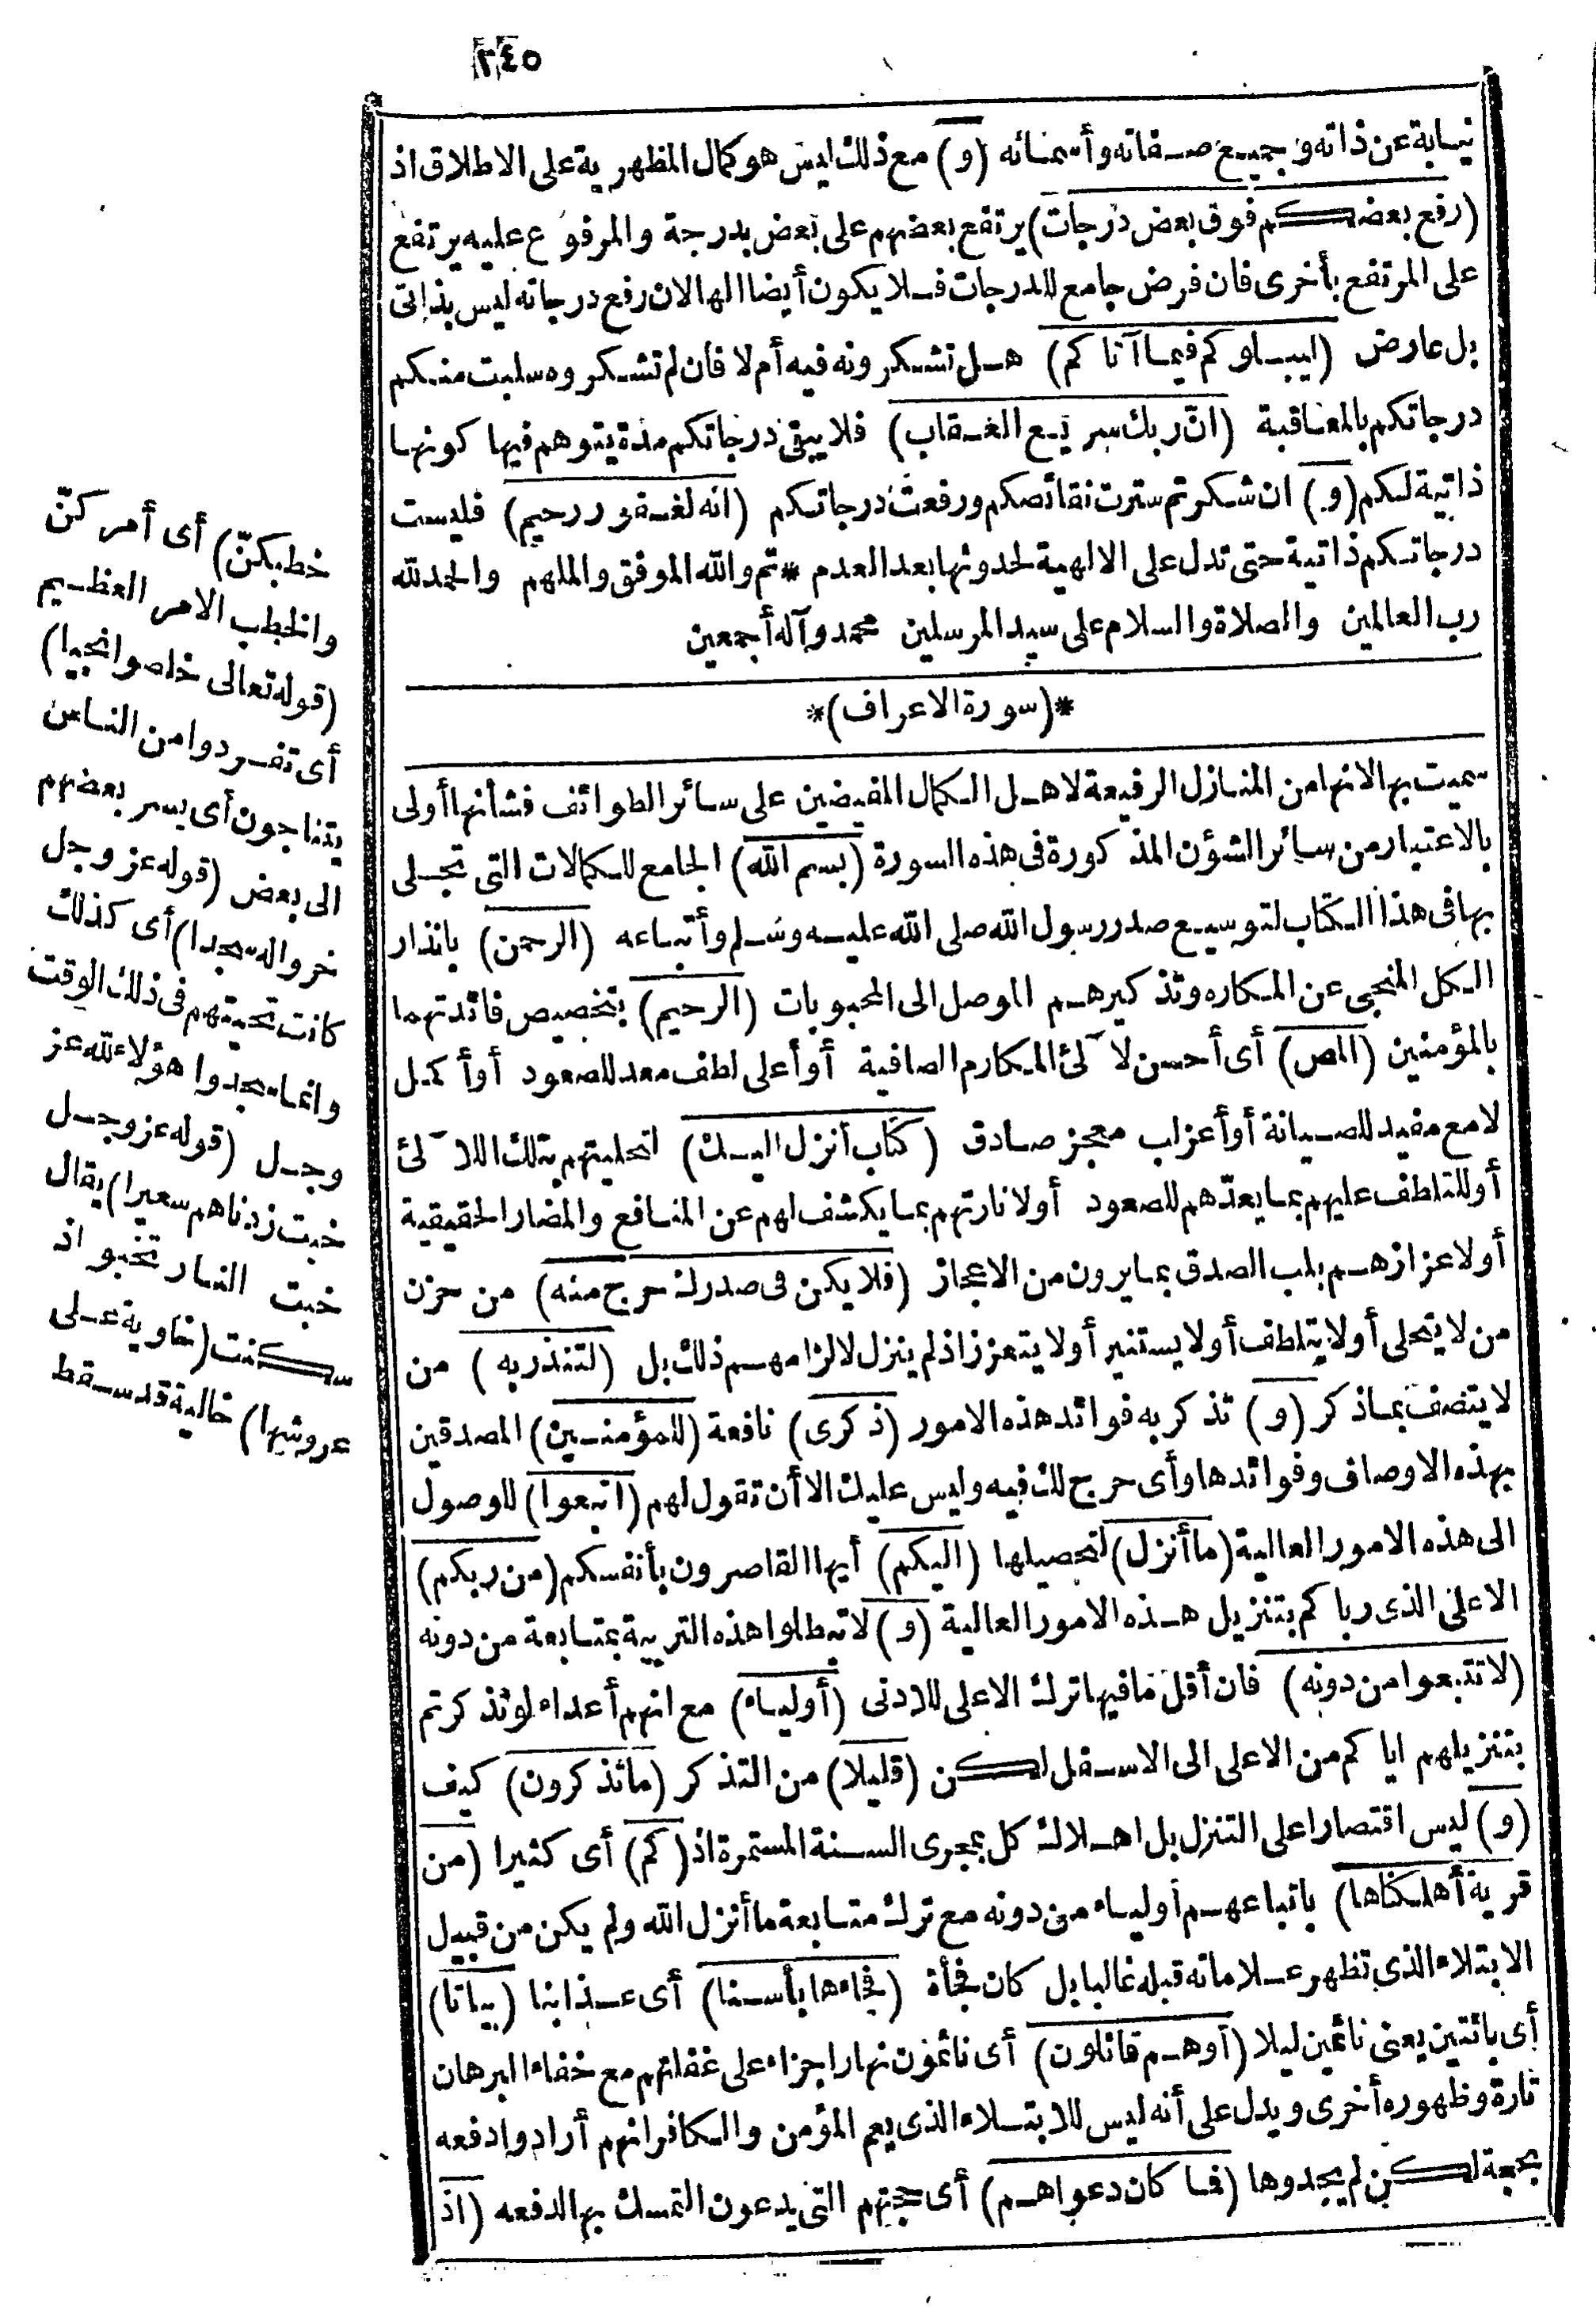 ٢٤٥
نيابة عن ذاته وجميع صفاته وأسمائه (و) مع ذلك ليس هو كمال المظهرية على الاطلاق اذ
(رفع بعضكم فوق بعض درجات) يرتفع بعضهم على بعض بدرجة والمرفوع عليه يرتفع
على المرتفع بأخرى فان فرض جامع للدرجات فلا يكون أيضا الها لان رفع درجاته ليس بذاتى
بل عارض (ليبلوكم فيما آتاكم) هل تشكرونه فيه أم لا فان لم تشكروه سلبت منكم
درجاتكم بالمعاقبة (ان ربك سريع العقاب) فلا يبقى درجاتكم مدة يتوهم فيها كونها
ذاتية لكم (و) ان شكرتم سترت نقائصكم ورفعت درجاتكم (انه لغفور رحيم) فليست
درجاتكم ذاتية حتى تدل على الالهية لحدوثها بعد العدم * تم والله الموفق والملهم والحمد لله
رب العالمين والصلاة والسلام على سيد المرسلين محمد وآله أجمعين
*(سورة الاعراف)*
سميت بها لانها من المنازل الرفيعة لاهل الكمال المفيضين على سائر الطوائف فشأنها أولى
بالاعتبار من سائر الشؤن المذكورة فى هذه السورة (بسم الله) الجامع للكمالات التى تجلى
بها فى هذا الكتاب لتوسيع صدر رسول الله صلى الله عليه وسلم وأتباعه (الرحمن) بانذار
الكل المنجى عن المكاره وتذكيرهم الموصل الى المحبوبات (الرحيم) بتخصيص فائدتهما
بالمؤمنين (المص) أى أحسن لآلئ المكارم الصافية أو أعلى لطف معد للصعود أو أكمل
لامع مفيد للصيانة أو أعز لب معجز صادق (كتاب أنزل اليك) لتحليتهم بتلك اللآلئ
أو للتلطف عليهم بما يعدّهم للصعود أو لانارتهم بما يكشف لهم عن المنافع والمضار الحقيقية
أو لاعزازهم بلب الصدق بما يرون من الاعجاز (فلا يكن فى صدرك حرج منه) من حزن
من لا يتحلى أو لا يتلطف أو لا يستنير أو لا يتعزز اذ لم ينزل لالزامهم ذلك بل (لتنذر به) من
لا يتصف بما ذكر (و) تذكر به فوائد هذه الامور (ذكرى) نافعة (للمؤمنين) المصدقين
بهذه الاوصاف وفوائدها وأى حرج لك فيه وليس عليك الا أن تقول لهم (اتبعوا) للوصول
الى هذه الامور العالية (ما أنزل) لتحصيلها (اليكم) أيها القاصرون بأنفسكم (من ربكم)
الاعلى الذى رباكم بتنزيل هذه الامور العالية (و) لا تبطلوا هذه التربية بمتابعة من دونه
(لا تتبعوا من دونه) فان أقل ما فيها ترك الاعلى للادنى (أولياء) مع انهم أعداء لو تذكرتم
بتنزيلهم اياكم من الاعلى الى الاسفل لكن (قليلا) من التذكر (ما تذكرون) كيف
(و) ليس اقتصارا على التنزل بل اهلاك كل بمجرى السنة المستمرة اذ (كم) أى كثيرا (من
قرية أهلكناها) باتباعهم أولياء من دونه مع ترك متابعة ما أنزل الله ولم يكن من قبيل
الابتلاء الذى تظهر علاماته قبله غالبا بل كان فجأة (فجاءها بأسنا) أى عذابنا (بياتا)
أى بائتين يعنى نائمين ليلا (أوهم قائلون) أى نائمون نهارا جزاء على غفلتهم مع خفاء البرهان
تارة وظهوره أخرى ويدل على أنه ليس للابتلاء الذى يعم المؤمن والكافر انهم أرادوا دفعه
بحجة لكن لم يجدوها (فما كان دعواهم) أى حجتهم التى يدعون التمسك بها لدفعه (اذ
خطبكنّ) أى أمركنّ
والخطب الامر العظيم
(قوله تعالى خلصوا نجيا)
أى تفردوا من الناس
يتناجون أى يسر بعضهم
الى بعض (قوله عز وجل
خروا له سجدا) أى كذلك
كانت تحيتهم فى ذلك الوقت
وانما سجدوا هؤلاء لله عز
وجل (قوله عز وجل
خبت زدناهم سعيرا) يقال
خبت النار تخبو اذ
سكنت (خاوية على
عروشها) خالية قد سقط